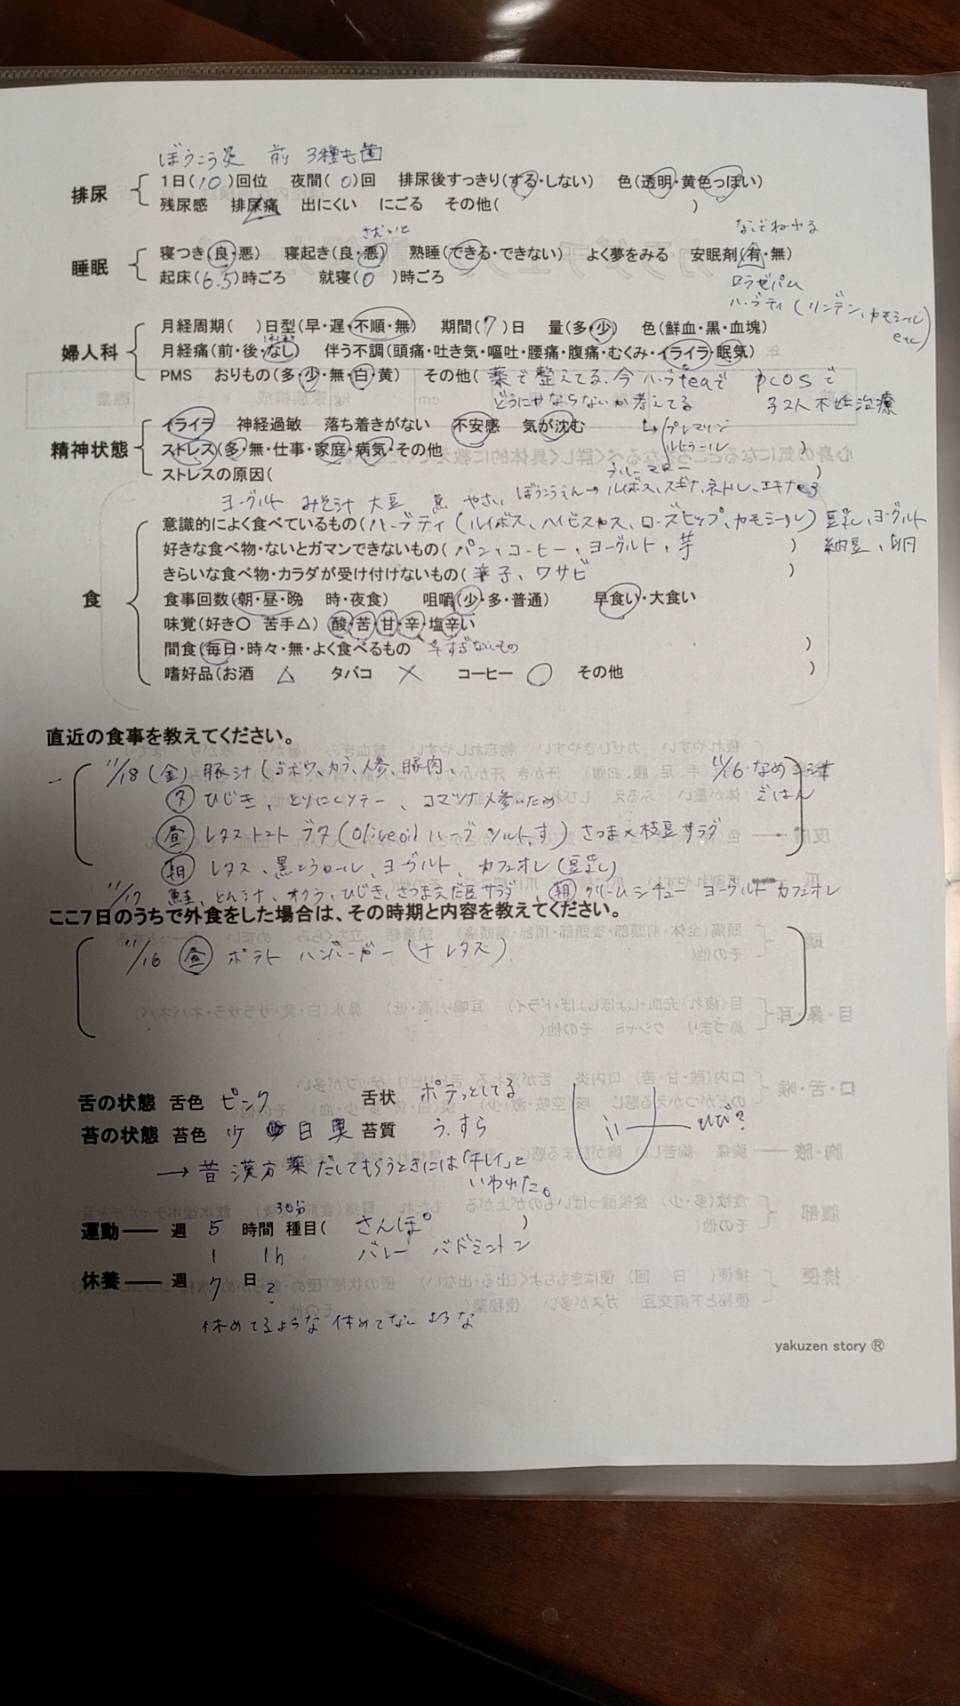 ぼうこう炎 前 3種も菌
排尿 1日(10)回位 夜間(0)回 排尿後すっきり(する・しない) 色(透明・黄色っぽい)
残尿感 排尿痛 出にくい にごる その他( )
さむいと
睡眠 寝つき(良・悪) 寝起き(良・悪) 熟睡(できる・できない) よく夢をみる 安眠剤(有・無)
起床(6.5)時ごろ 就寝(0)時ごろ
ロラゼパム
ハーブティ(リンデン、カモミール etc)
婦人科 月経周期( )日型(早・遅・不順・無) 期間(7)日 量(多・少) 色(鮮血・黒・血塊)
月経痛(前・後・なし) 伴う不調(頭痛・吐き気・嘔吐・腰痛・腹痛・むくみ・イライラ・眠気)
PMS おりもの(多・少・無・白・黄) その他(薬で整えてる、今ハーブteaで PCOSで
どうにかならないか考えてる 子2人不妊治療
精神状態 イライラ 神経過敏 落ち着きがない 不安感 気が沈む
プレマリン
ストレス(多・無・仕事・家庭・病気・その他
ストレスの原因( )
ヨーグルト みそ汁 大豆 魚 やさい ぼうこうえん→ルイボス、スギナ、ネトル、エキナ
食 意識的によく食べているもの(ハーブティ(ルイボス、ハイビスカス、ローズヒップ、カモミール) 豆乳、ヨーグルト
好きな食べ物・ないとガマンできないもの(パン、コーヒー、ヨーグルト、芋 ) 納豆、卵
きらいな食べ物・カラダが受け付けないもの(辛子、ワサビ )
食事回数(朝・昼・晩 時・夜食) 咀嚼(少・多・普通) 早食い・大食い
味覚(好き○ 苦手△) 酸・苦・甘・辛・塩辛い
間食(毎日・時々・無・よく食べるもの 辛すぎないもの )
嗜好品(お酒 △ タバコ × コーヒー ○ その他 )
直近の食事を教えてください。
11/18(金) 豚汁(ゴボウ、カブ、人参、豚肉、 11/16・なめこ汁
夕 ひじき、とりにくソテー、コマツナ人参いため ごはん
昼 レタス トマト ブタ(Olive oil ハーブソルト、す) さつま×枝豆サラダ
朝 レタス、黒こうロール、ヨーグルト、カフェオレ(豆乳)
11/17 鮭、とん汁、オクラ、ひじき、さつまえだ豆サラダ、朝 クリームシチュー ヨーグルト カフェオレ
ここ7日のうちで外食をした場合は、その時期と内容を教えてください。
11/16 昼 ポテト ハンバーガー(+レタス)
舌の状態 舌色 ピンク 舌状 ポテっとしてる
苔の状態 苔色 少 白 奥 苔質 うっすら ひび?
→ 昔 漢方薬だしてもらうときには「キレイ」と
いわれた。
30分
運動 ― 週 5 時間 種目( さんぽ )
1 1h バレー バドミントン
休養 ― 週 7 日?
休めてるような休めてないような
yakuzen story ®